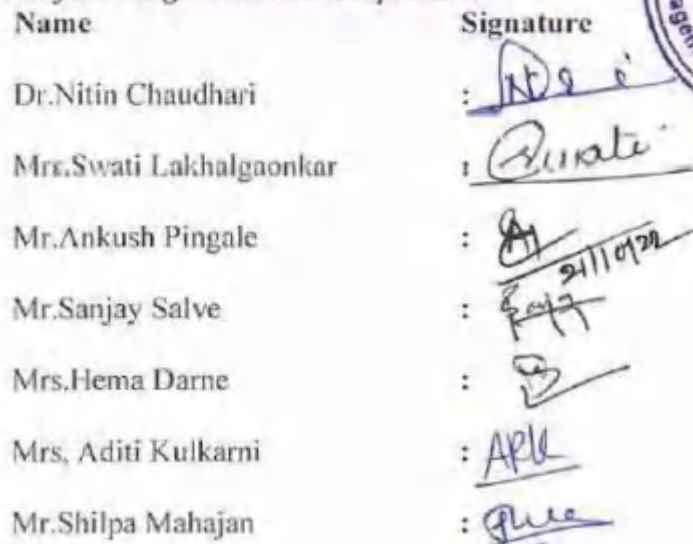 Name Signature
Dr.Nitin Chaudhari :
Mrs.Swati Lakhalgaonkar : Swati
Mr.Ankush Pingale :
21/10/22
Mr.Sanjay Salve :
Mrs.Hema Darne :
Mrs. Aditi Kulkarni : ARK
Mr.Shilpa Mahajan :